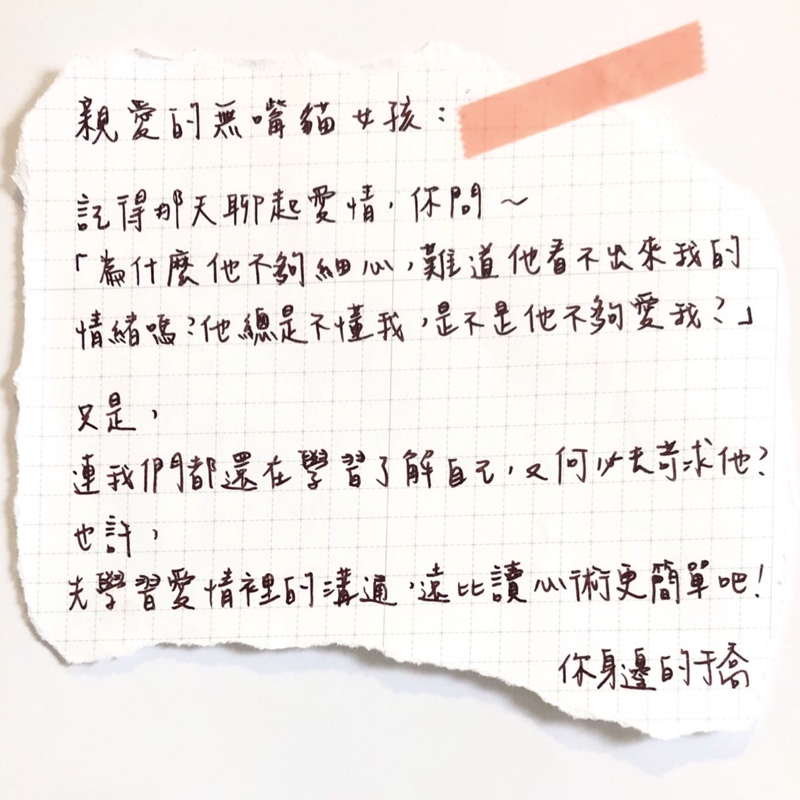 親愛的無嘴貓女孩：
記得那天聊起愛情，你問～
「為什麼他不夠細心，難道他看不出來我的
情緒嗎？他總是不懂我，是不是他不夠愛我？」
只是，
連我們都還在學習了解自己，又何必去苛求他？
也許，
先學習愛情裡的溝通，遠比讀心術更簡單吧！
你身邊的于喬